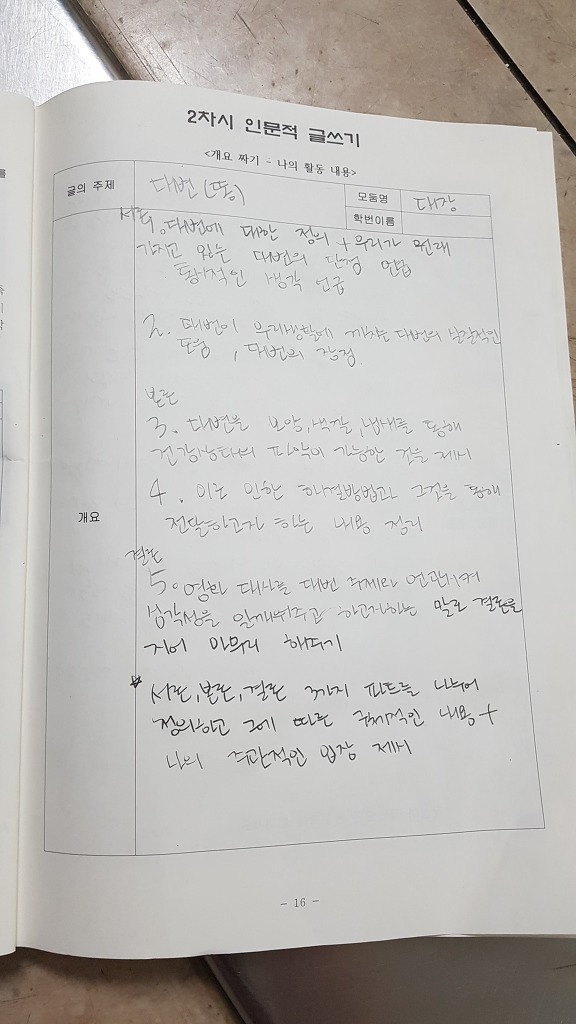 2차시 인문적 글쓰기
<개요 짜기 - 나의 활동 내용>
글의 주제
대변(똥)
모둠명
대장
학번이름
개요
서론
1. 대변에 대한 정의 + 우리가 원래
가지고 있는 대변의 단점 언급
통시적인 생각 언급
2. 대변이 우리생활에 끼치는 대변의 실질적인
도움, 대변의 장점
본론
3. 대변을 모양, 색깔, 냄새를 통해
건강상태의 파악이 가능한 것을 제시
4. 이로 인한 해결방법과 그것을 통해
전달하고자 하는 내용 정리
결론
5. 영화 대사를 대변 주제와 연관시켜
심각성을 일깨워주고 하고자하는 말로 결론을
지어 마무리 해주기
* 서론, 본론, 결론 3가지 파트를 나누어
정의하고 그에 따른 구체적인 내용 +
나의 주관적인 입장 제시
- 16 -
를